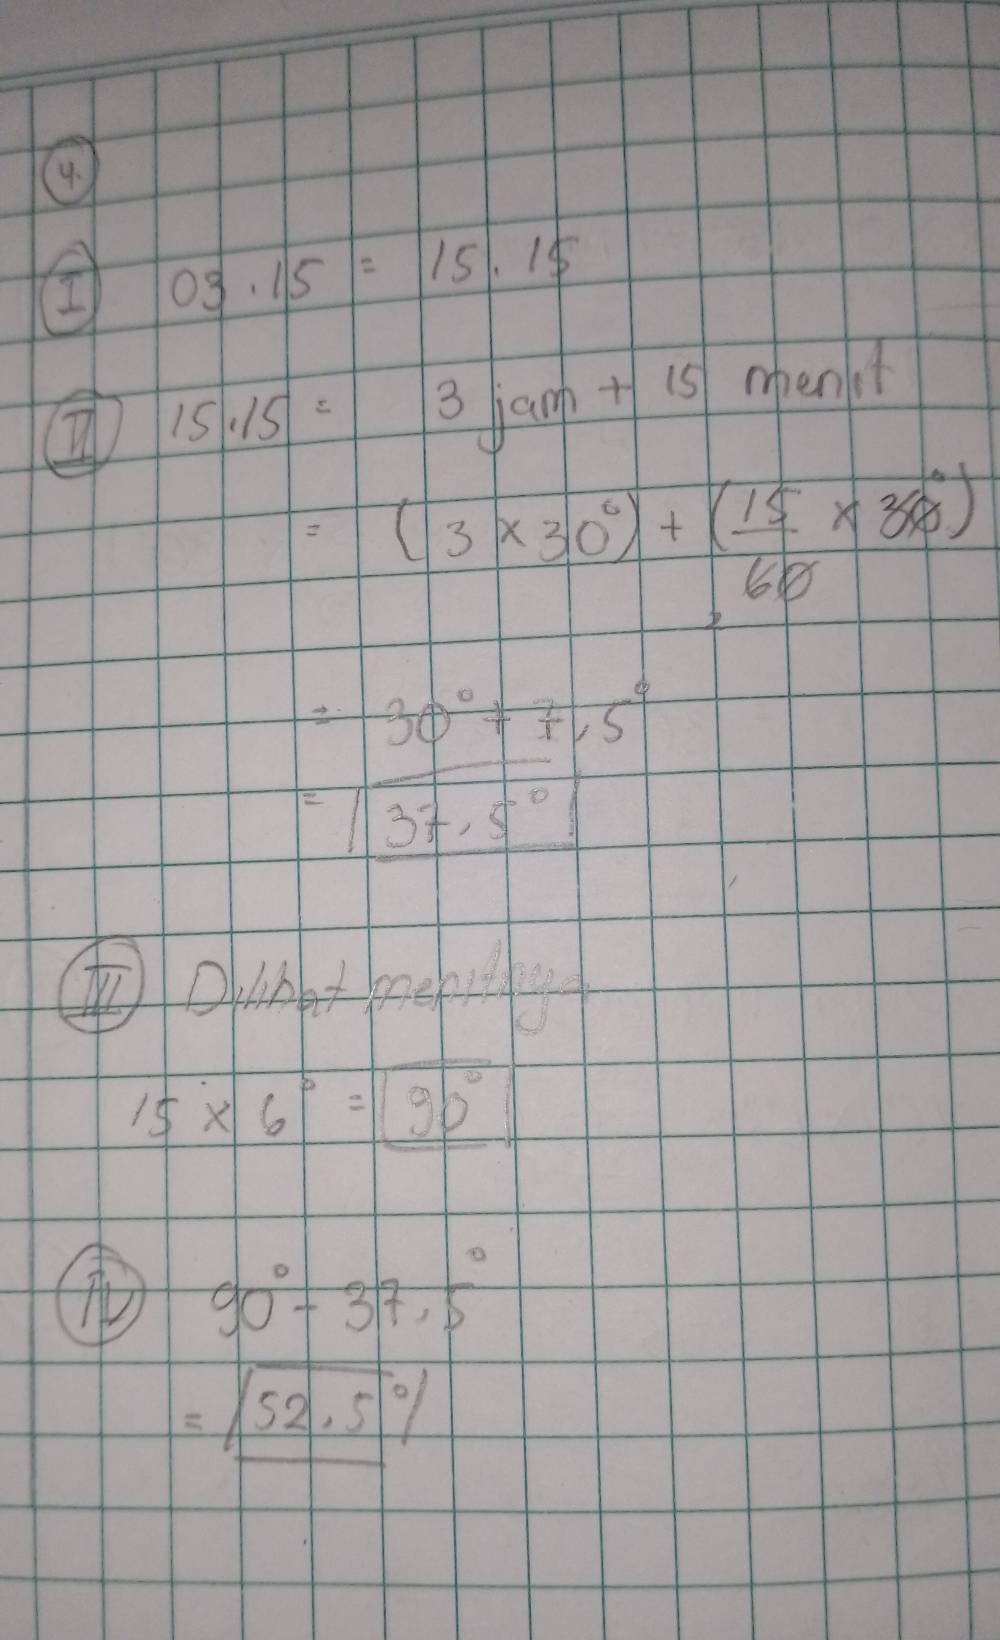 4.
I 03.15 = 15.15
II 15.15 = 3 jam + 15 menit
= (3 x 30°) + (15/60 x 30°)
= 30° + 7,5°
= 37,5°
III Dilihat menitnya
15 x 6° = 90°
IV 90° - 37,5°
= 52,5°